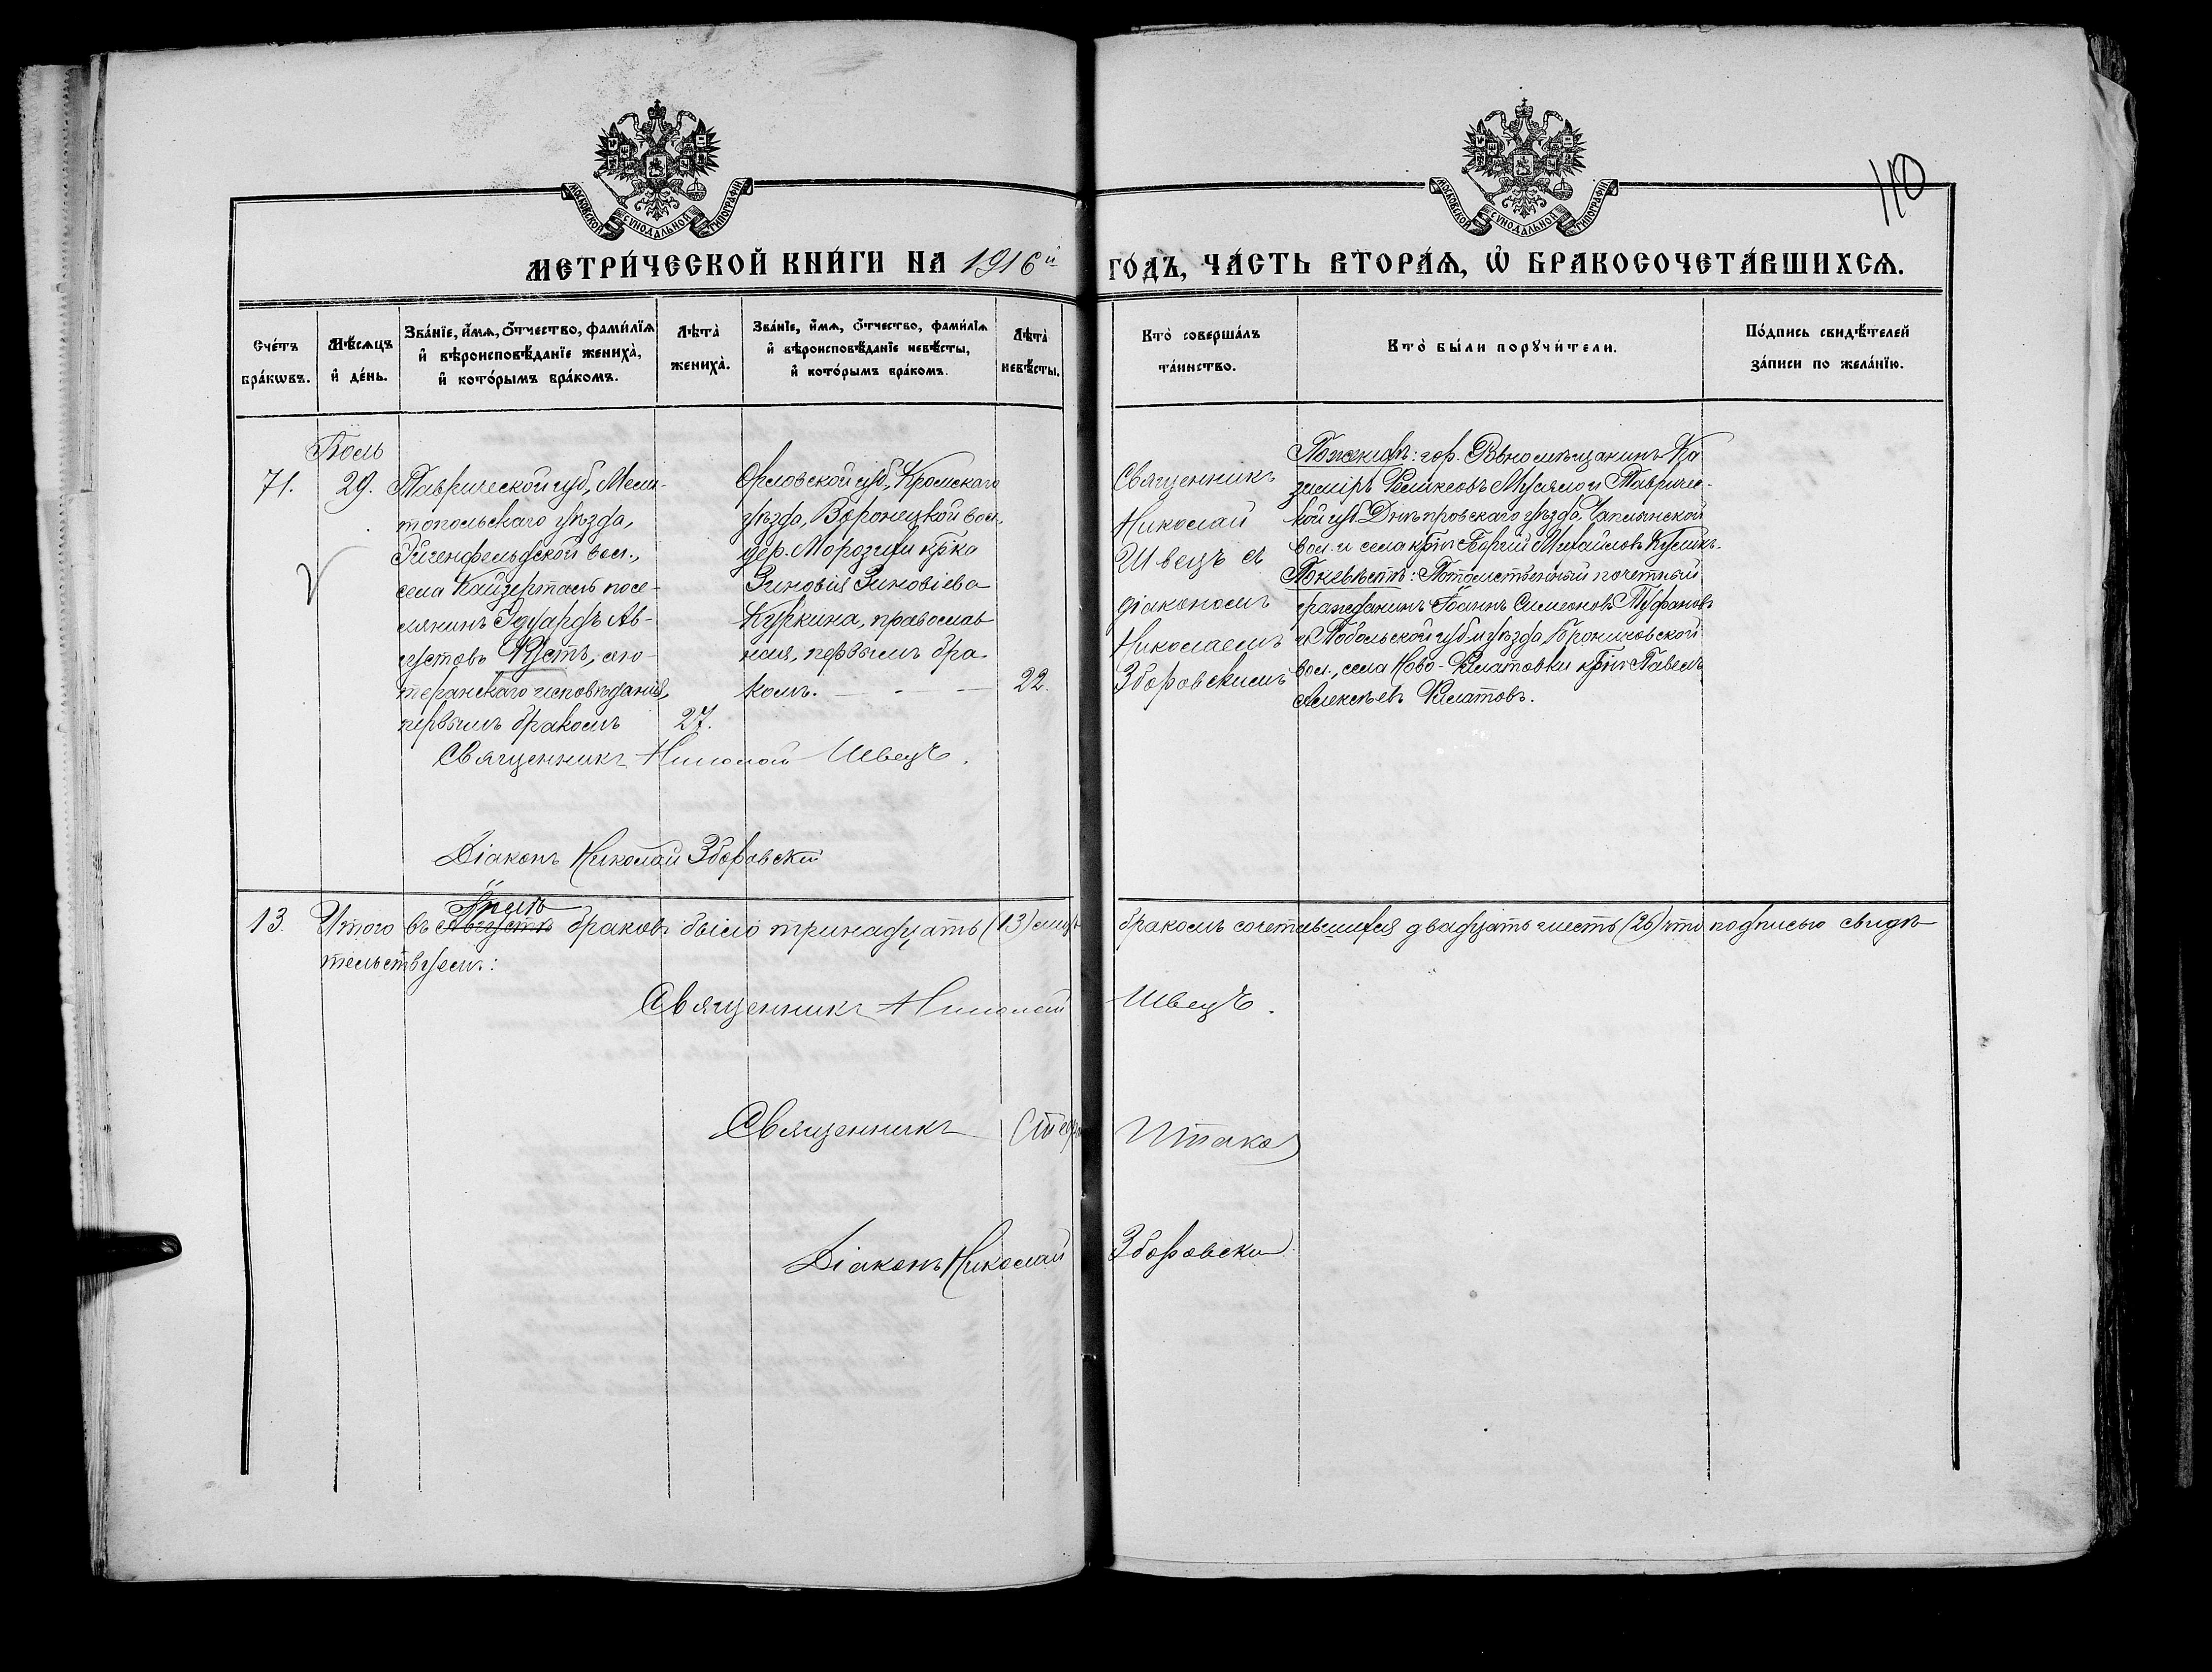 110
МОСКОВСКОЙ СѴНОДАЛЬНОЙ ТИПОГРАФІИ
МОСКОВСКОЙ СѴНОДАЛЬНОЙ ТИПОГРАФІИ
МЕТРИ́ЧЕСКОЙ КНИ́ГИ НА 1916й
ГО́ДЪ, ЧА́СТЬ ВТОРА́Ѧ, Ѡ҆ БРАКОСОЧЕТА́ВШИХСѦ.
Сче́тъ бра́кѡвъ.
Мѣ́сѧцъ и҆ де́нь.
Зва́нїе, и҆́мѧ, ѻ҆́тчество, фами́лїѧ
и҆ вѣроисповѣ́данїе жениха̀,
и҆ кото́рымъ бра́комъ.
Лѣта̀ жениха̀.
Зва́нїе, и҆́мѧ, ѻ҆́тчество, фами́лїѧ
и҆ вѣроисповѣ́данїе невѣ́сты,
и҆ кото́рымъ бра́комъ.
Лѣта̀ невѣ́сты.
Кто̀ соверша́лъ
та́инство.
Кто̀ бы́ли порꙋчи́тели.
По́дпись свидѣ́телей
за́писи по жела́нїю.
Іюль
71.
29.
Таврической губ., Мели-
топольскаго уѣзда,
Эйгенфельдской вол.,
села Кайзерталь посе-
лянинъ Эдуардъ Ав-
густовъ Рустъ, лю-
теранскаго исповѣданія,
первымъ бракомъ
27.
Орловской губ., Кромскаго
уѣзда, Воронецкой вол.,
дер. Морозихи кр-ка
Зиновія Зиновіева
Куркина, православ
ная, первымъ бра-
комъ. - - -
22.
Священникъ
Николай
Швецъ съ
діакономъ
Николаемъ
Зборовскимъ
По женихѣ: гор. Вѣнс мѣщанинъ Ка
зиміръ Феликсовъ и Тавричес-
кой губ. Днѣпровскаго уѣзда, Чаплынской
вол. и села кр-нъ Георгій Михайловъ
По невѣстѣ: Потомственный почетный
гражданинъ Іоаннъ Симеоновъ Туффановъ
и Тобольской губ. и уѣзда Брониковской
вол., села Ново-Филатовки кр-нъ Павелъ
Алексѣевъ Филатовъ.
Священникъ Николай Швецъ.
Діаконъ Николай Зборовскій
Іюлѣ
13. Итого въ Августѣ браковъ было тринадцать (13) лицъ бракомъ сочетавшихся двадцать шесть (26) что подписью свидѣ-
тельствуемъ:
Священникъ Николай Швецъ.
Священникъ
Діаконъ Николай Зборовскій